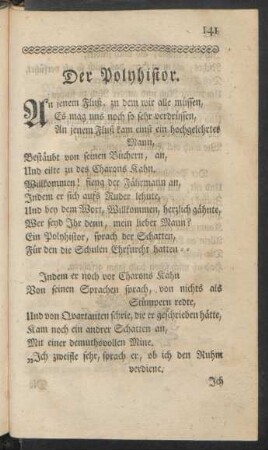 141
Der Polyhistor.
An jenem Fluß, zu dem wir alle müssen,
Es mag uns noch so sehr verdrüssen,
An jenem Fluß kam einst ein hochgelehrter
Mann,
Bestäubt von seinen Büchern, an,
Und eilte zu des Charons Kahn.
Willkommen! fieng der Fährmann an,
Indem er sich aufs Ruder lehnte,
Und bey dem Wort, Willkommen, herzlich gähnte,
Wer seyd Ihr denn, mein lieber Mann?
Ein Polyhistor, sprach der Schatten,
Für den die Schulen Ehrfurcht hatten - -
Indem er noch vor Charons Kahn
Von seinen Sprachen sprach, von nichts als
Stümpern redte,
Und von Qvartanten schrie, die er geschrieben hätte,
Kam noch ein andrer Schatten an,
Mit einer demuthsvollen Mine.
„Ich zweifle sehr, sprach er, ob ich den Ruhm
verdiene,
Ich